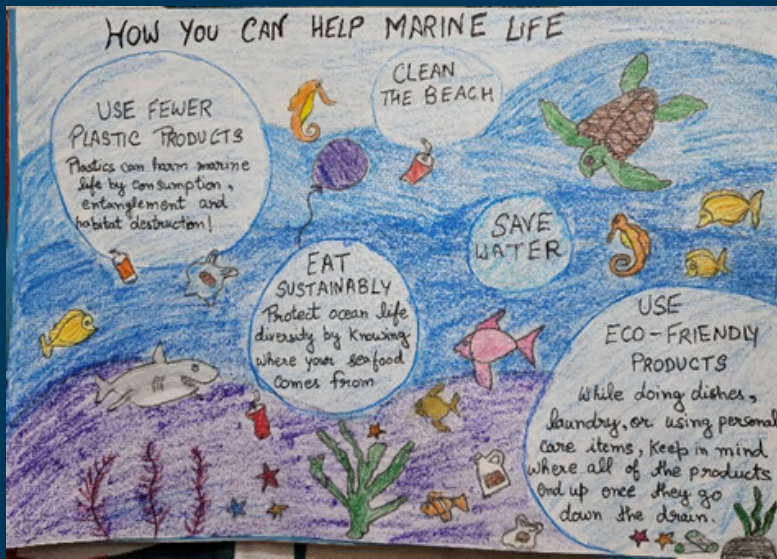 HOW YOU CAN HELP MARINE LIFE
USE FEWER
PLASTIC PRODUCTS
Plastics can harm marine
life by consumption,
entanglement and
habitat destruction!
CLEAN
THE BEACH
SAVE
WATER
EAT
SUSTAINABLY
Protect ocean life
diversity by knowing
where your seafood
comes from
USE
ECO-FRIENDLY
PRODUCTS
While doing dishes,
laundry, or using personal
care items, keep in mind
where all of the products
end up once they go
down the drain.